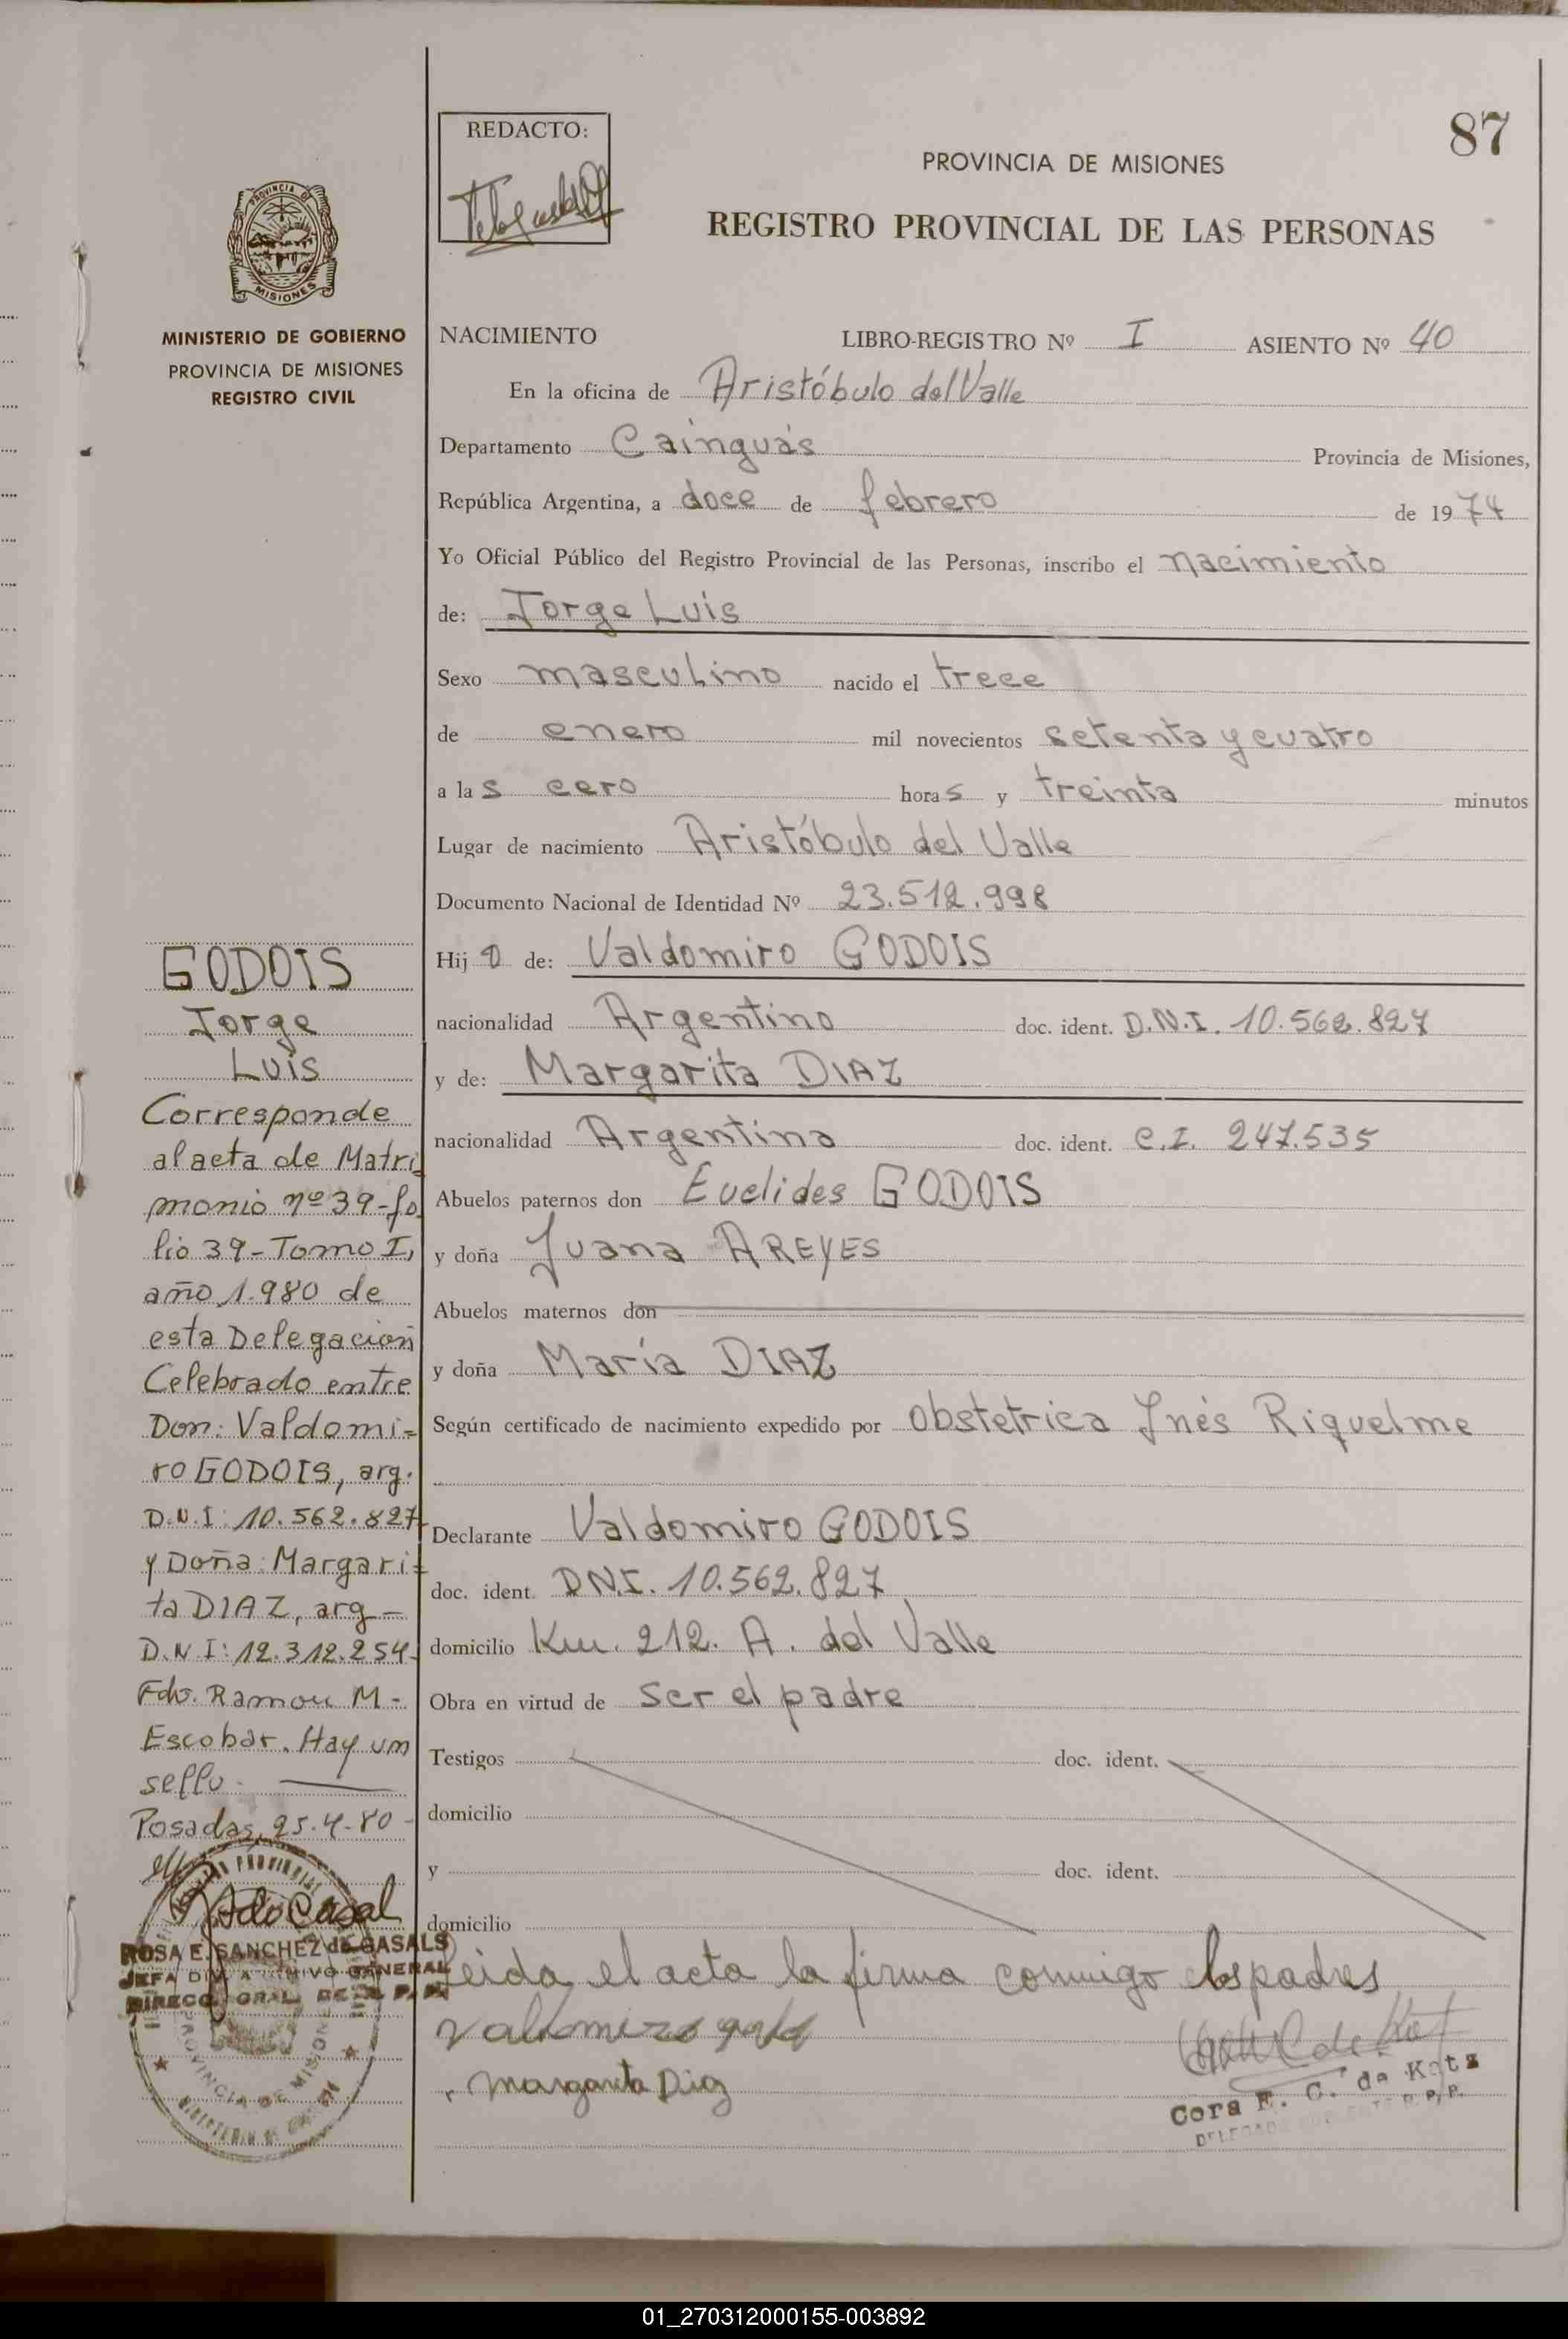 87
REDACTO:
PROVINCIA DE MISIONES
REGISTRO PROVINCIAL DE LAS PERSONAS
PROVINCIA DE
MISIONES
MINISTERIO DE GOBIERNO
PROVINCIA DE MISIONES
REGISTRO CIVIL
NACIMIENTO LIBRO-REGISTRO Nº I ASIENTO Nº 40
En la oficina de Aristóbulo del Valle
Departamento Cainguás Provincia de Misiones,
República Argentina, a doce de febrero de 1974
Yo Oficial Público del Registro Provincial de las Personas, inscribo el nacimiento
de: Jorge Luis
Sexo masculino nacido el trece
de enero mil novecientos setenta y cuatro
a las cero horas y treinta minutos
Lugar de nacimiento Aristóbulo del Valle
Documento Nacional de Identidad Nº 23.512.998
Hijo de: Valdomiro GODOIS
nacionalidad Argentino doc. ident. D.N.I. 10.562.827
y de: Margarita DIAZ
nacionalidad Argentina doc. ident. C.I. 247.535
Abuelos paternos don Euclides GODOIS
y doña Juana AREYES
Abuelos maternos don
y doña María DIAZ
Según certificado de nacimiento expedido por obstetrica Inés Riquelme
Declarante Valdomiro GODOIS
doc. ident. DN.I. 10.562.827
domicilio Km. 212. A. del Valle
Obra en virtud de ser el padre
Testigos doc. ident.
domicilio
y doc. ident.
domicilio
Leida el acta la firma conmigo los padres
Margarita Diaz
Cora E. C. de Kotz
GODOIS
Jorge
Luis
Corresponde
al acta de Matri
monio nº 39-fo
lio 39-Tomo I,
año 1.980 de
esta Delegacion
Celebrado entre
Don: Valdomi-
ro GODOIS, arg.
D.N.I: 10.562.827
y Doña: Margari-
ta DIAZ, arg-
D.N I: 12.312.254-
Fdo. Ramon M-
Escobar. Hay un
sello.
Posadas, 25-4-80-
ROSA E. SANCHEZ de CASALS
JEFA DIV. ARCHIVO GENERAL
DIRECC. GRAL. DE R. P. P.
PROVINCIA DE MISIONES
01_270312000155-003892